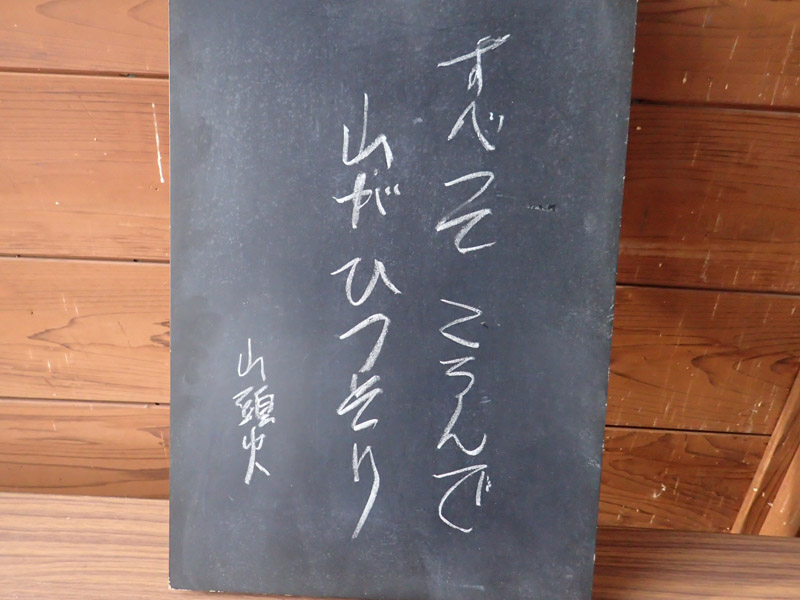 すべつて ころんで
山がひつそり
山頭火